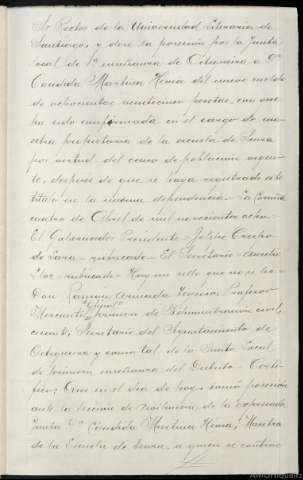 Sr Rector de la Universidad Literaria de
Santiago; y dese la posesión por la Junta
local de 1ª enseñanza de Ortigueira a Dª
Candida Martina Hemia del nuevo sueldo
de ochocientas veinticinco pesetas, con que
ha sido confirmada en el cargo de ma-
estra propietaria de la escuela de Senra
por virtud del censo de población vigen-
te, despues de que se haya registrado este
titulo en la misma dependencia - La Coruña
cuatro de Abril de mil novecientos ocho -
El Gobernador Presidente - Felipe Crespo
de Lara - rubricado - El Secretario - Aurelio
- rubricado - Hay un sello que no se lee -
Don Ramon Armada Teixeiro, Profesor
Mercantil, primero de Administración civil,
Secretario del Ayuntamiento de
Ortigueira y como tal de la Junta Local
de primera enseñanza del Distrito - Certi-
fico: Que en el día de hoy tomó posesión
ante la Sección de de la expresada
Junta Dª Cándida Martina Hemia, Maestra
de la Escuela de Senra, a quien se contrae